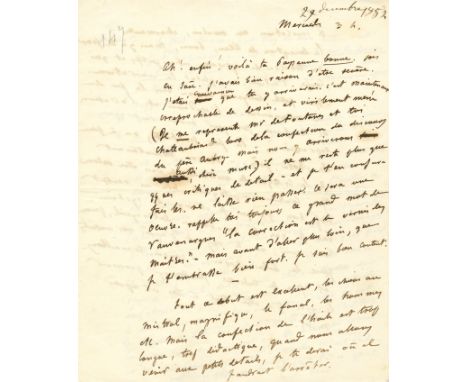 29 decembre 1852
Mercredi 2 h.
147
Ah ! enfin ! voilà ta Paysanne bonne, sois
en sûre, j'avais bien raison d'être sévère.
j'étais convaincu que tu y arriverais. c'est maintenant
irreprochable de dessin, et virilement mené
(Je me represente mr de Fontanes et ton
chateaubriand lors de la confection du discours
du père Aubry. mais nous y arriverons
dix mois) il ne me reste plus que
qques critiques de detail - et je t'en conjure
fais les. ne laisse rien passer. ce sera une
oeuvre. rappelle toi toujours ce grand mot de
Vauvenargues "la correction est le vernis des
maîtres." - mais avant d'aller plus loin, que
je t'embrasse bien fort. je suis bien content.
tout ce debut est excellent, les chiens au
mistral, magnifique, le fanal, les hommes
etc. mais la confection de l'huile est trop
longue, trop didactique, quand nous allons
venir aux petits details, je te dirai où il
faudrait l'arrêter.